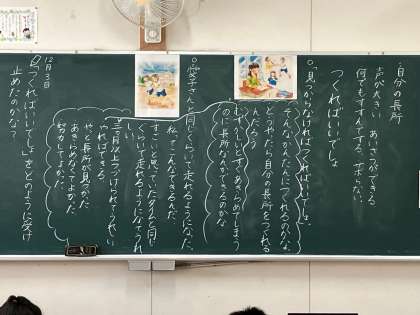 ・自分の長所
声が大きい あいさつができる
何でもすすんでする、サボらない
つくればいいでしょ
○見つからなければつくればいいでしょ。
そんなかんたんにつくれるのかな。
どうやったら自分の長所をつくれる
んだろう
むずかしいとすぐあきらめてしまう
のに、長所なんかできるのかな
○愛子さんと同じくらいに走れるようになった。
私、こんなにできるんだ
すごいと思っていたタイムと同じ
くらいで走れるようになってうれ
しい
三か月以上つづけられてうれしい
やればできる。
やっと長所が見つかった
あきらめなくてよかった
努力してよかった。
12月3日
「つくればいいでしょ」をどのように受け
止めたのかな?